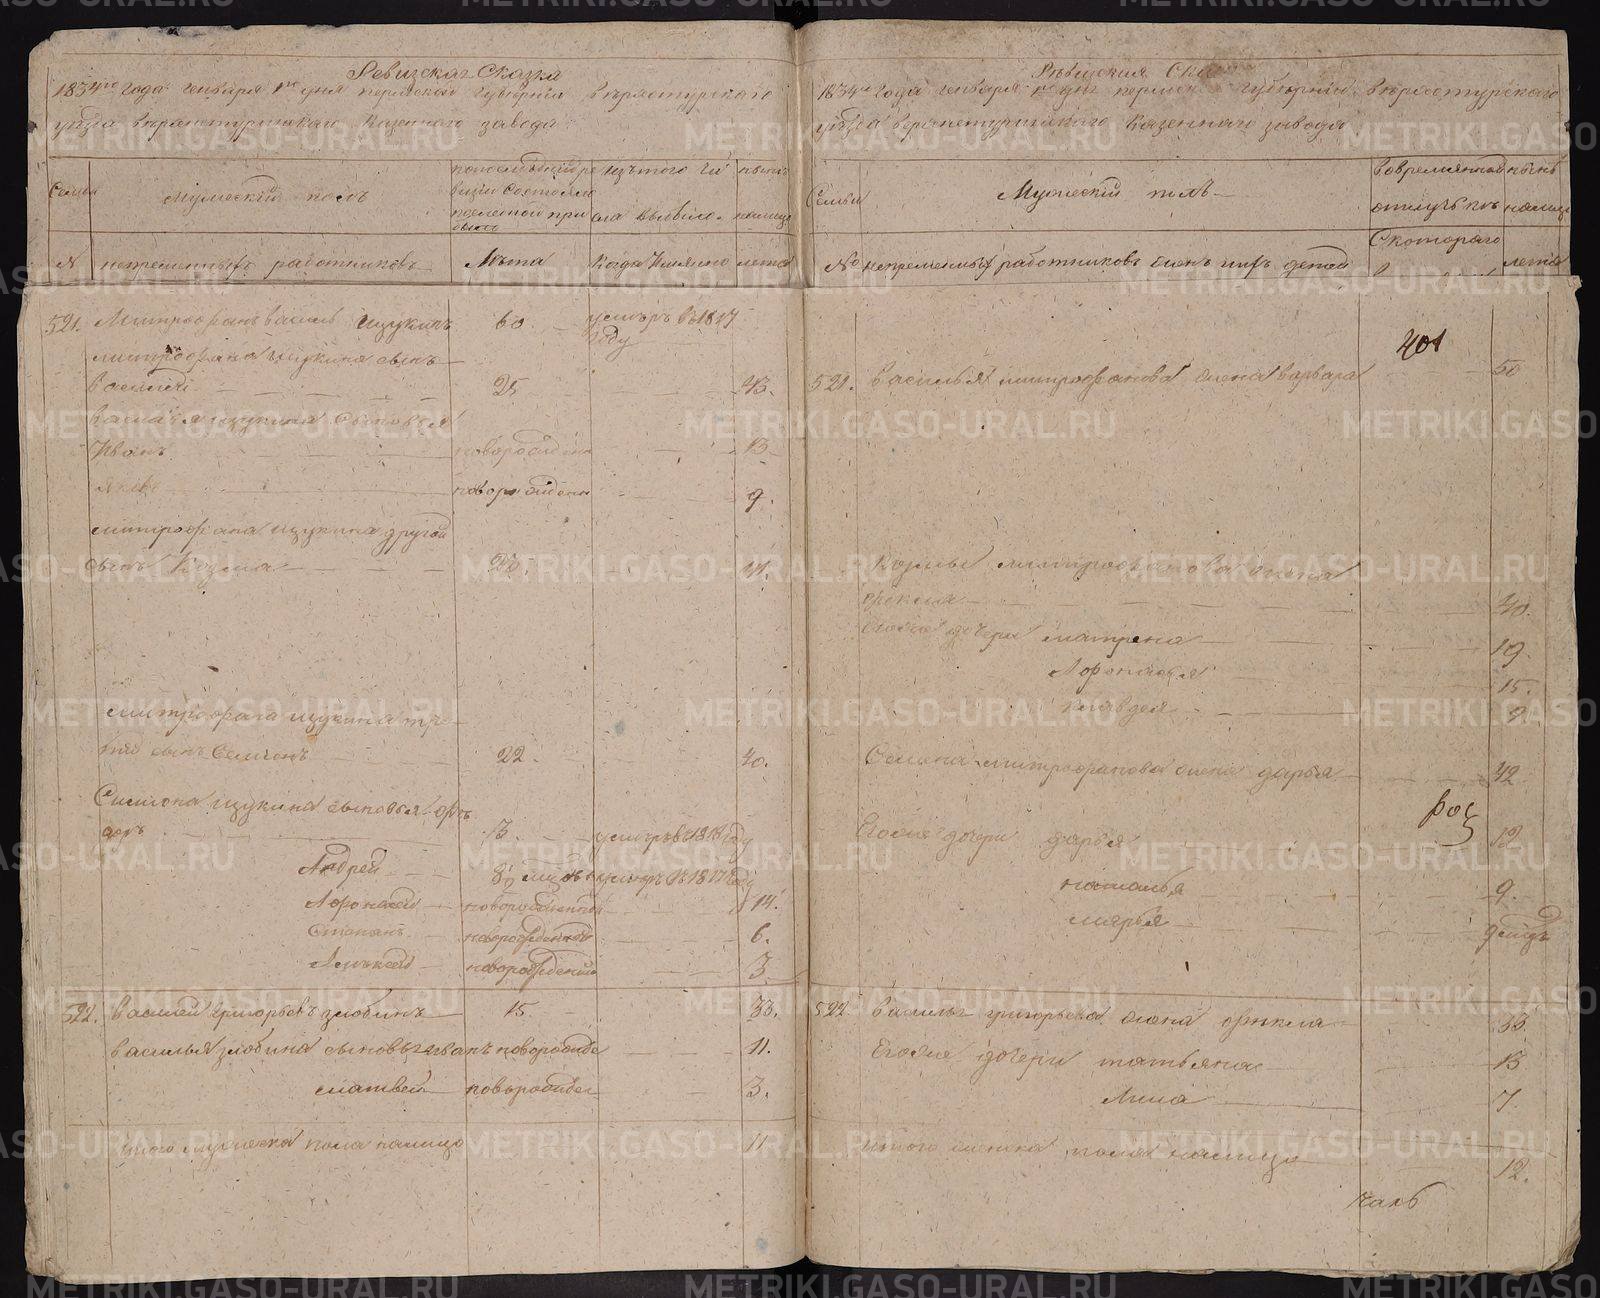 Ревизская Сказка
1834го года генваря 1го дня пермской губернии верхотурского
уезда верхнетуринскаго казенного завода
Семьи
мужеский полъ
попоследней ре
визии состояло
и после оной при
было
изъ того чи
сла выбыло
ныне
налицо
№
непременныхъ работниковъ
Лета
Когда Имянно
лета
521.
Митрофанъ васильевъ щукинъ
60.
умеръ в 1817
году
митрофана щукина сынъ
василей
25
43.
василья щукина сыновья
Иванъ
новорожденн
13
яковъ
новорожденн
9.
митрофана щукина другой
сынъ Козма
23.
41.
митрофана щукина тре
тий сынъ Семионъ
22.
40.
Симиона щукина сыновья фе
доръ
3.
умеръ в 1818 году
Андрей
умеръ в 1817 году
Афонасей
новорожденной
14.
Степанъ
новорожденной
6.
Алексей
новорожденной
3
522.
василей григорьевъ злобинъ
15.
33.
василья злобина сыновья иванъ новорожде
11.
матвей
новорожде
3.
итого мужеска пола налицо
11
Ревизския Ска
1834го года генваря 1го дня пермск губернии верхотурскаго
уезда верхнетуринскаго казеннаго завода
Семьи
Мужеский полъ
вовременной
отлучке
ныне
налицо
Скотораго
№
непременныхъ работниковъ женъ ихъ детей
лета
401
521.
василья митрофанова жена варвара
50
Козмы митрофанова жена
фекла
40.
Егоже дочери матрена
19.
Афонасья
15.
клавдея
9
Семена митрофанова жена дарья
42
Егоже дочери дарья
12
наталья
9.
марья
522
василья григорьева жена фекла
33.
Егоже дочери татьяна
13
Анна
7.
итого женска пола налицо
12.